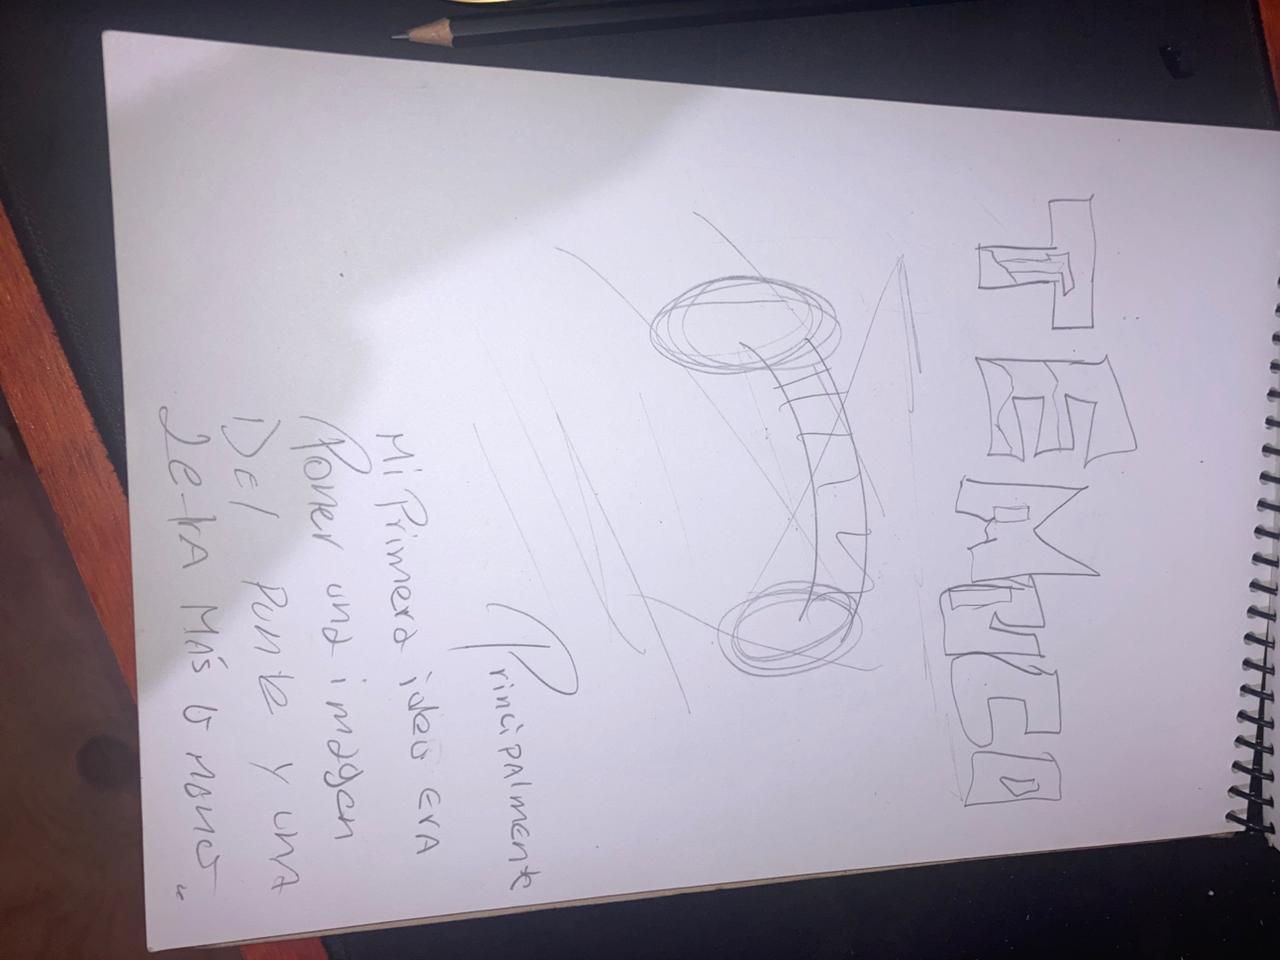 TEMUCO
Principalmente
Mi Primera idea ErA
Poner una imagen
DEl Punte y unA
LetrA MÁS o meno.